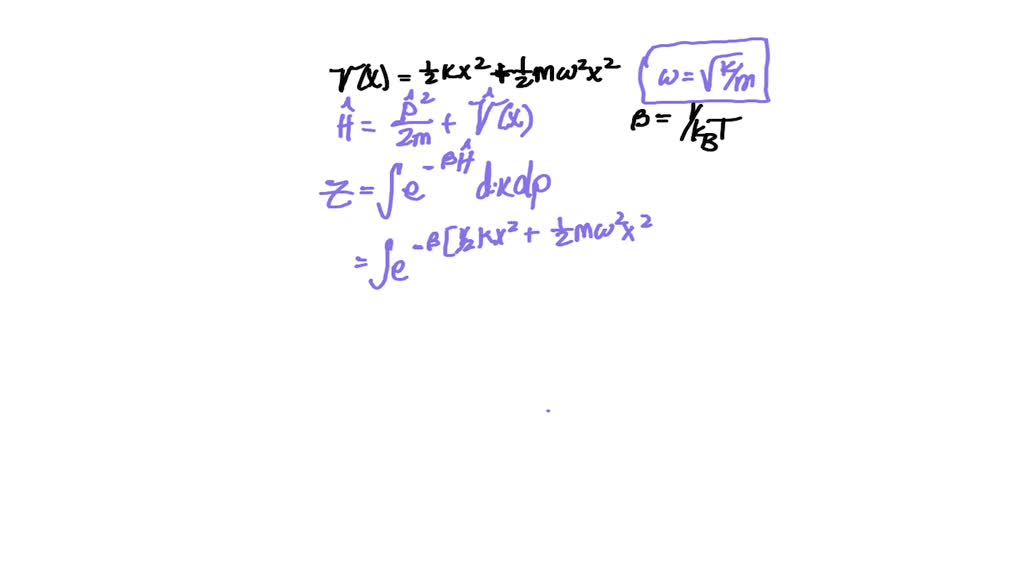 V(x) = ½kx² + ½mω²x² ω = √k/m
Ĥ = p̂²/2m + V̂(x) β = 1/k_BT
Z = ∫e^{-βĤ} dxdp
= ∫e^{-β[½kx² + ½mω²x²}